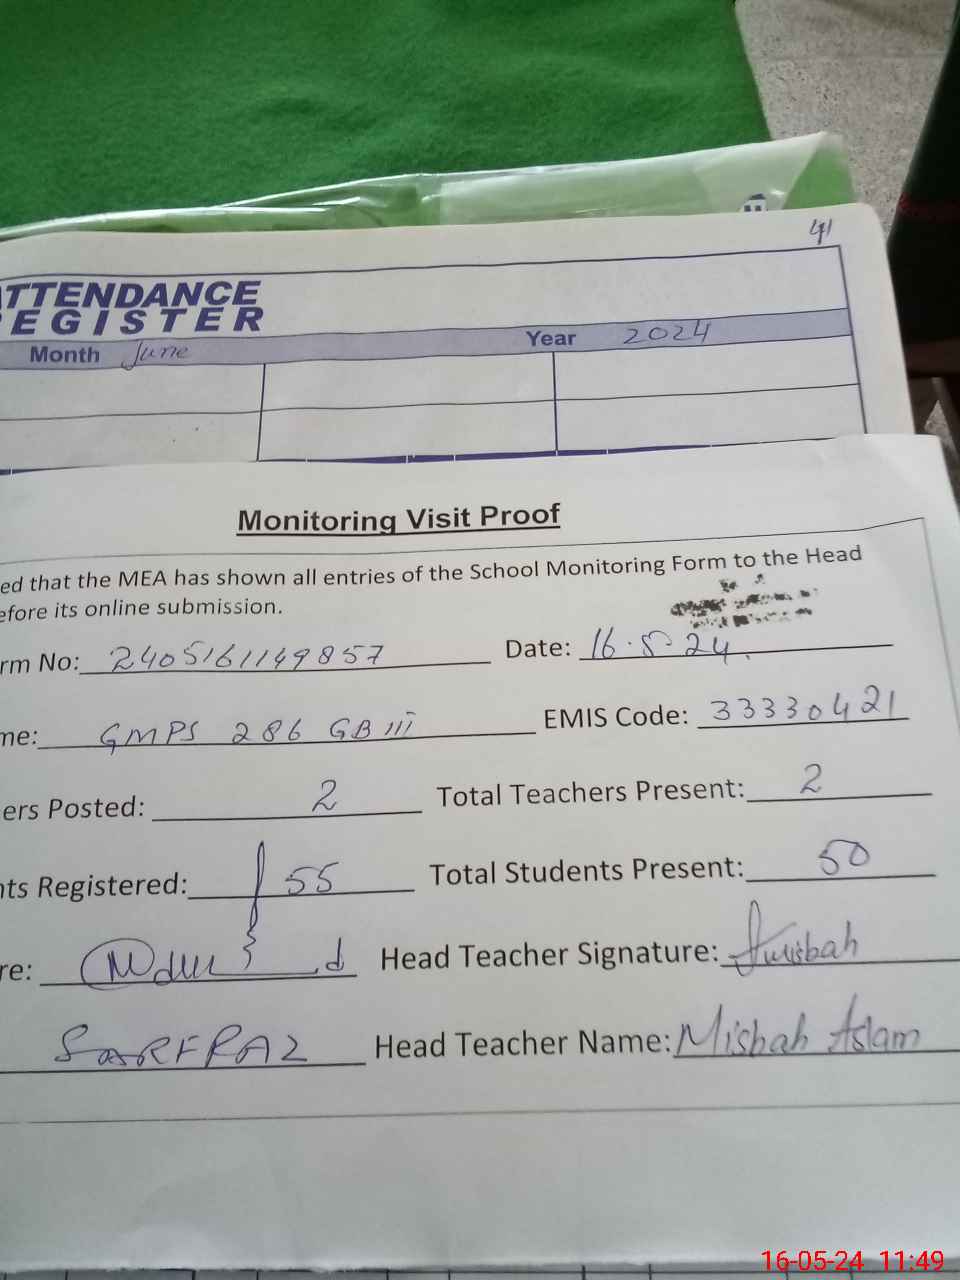 41
ATTENDANCE
REGISTER
Month June Year 2024
Monitoring Visit Proof
ed that the MEA has shown all entries of the School Monitoring Form to the Head
efore its online submission.
rm No: 2405161149857 Date: 16.5.24.
me: GMPS 286 GB iii EMIS Code: 33330421
ers Posted: 2 Total Teachers Present: 2
nts Registered: 55 Total Students Present: 50
re: Head Teacher Signature: Misbah
SARFRAZ Head Teacher Name: Misbah Aslam
16-05-24 11:49